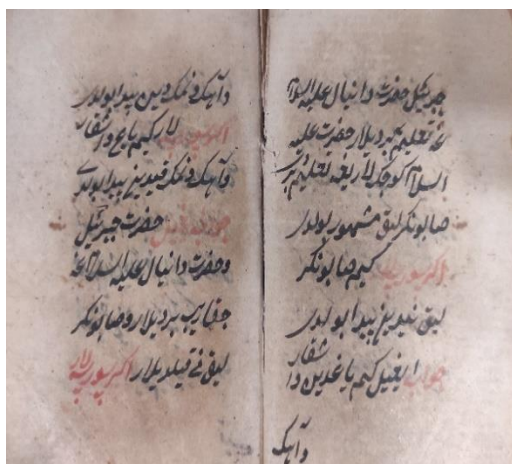 جبرئیل حضرت دانیال علیه السلام
غه تعلیم بیردیلار حضرت علیه
السلام کوچک لاریغه تعلیم بیرب
صابونکرلیق مشهور بولدی
اکر سورسه لار کیم صابونکر
لیق نیدین پیدا بولدی
جواب ایغیل کیم یاغدین دا شقار
وآهک
وآهک و نمک دین پیدا بولدی
اکر سورسه لار کیم یاغ و اشقار
وآهک و نمک قیدین پیدا بولدی
جواب ایغیل حضرت جبرئیل
و حضرت دانیال علیه السلام غه
بیردیلار و صابونکر
لیق نی قیلدیلار اکر سورسه لار